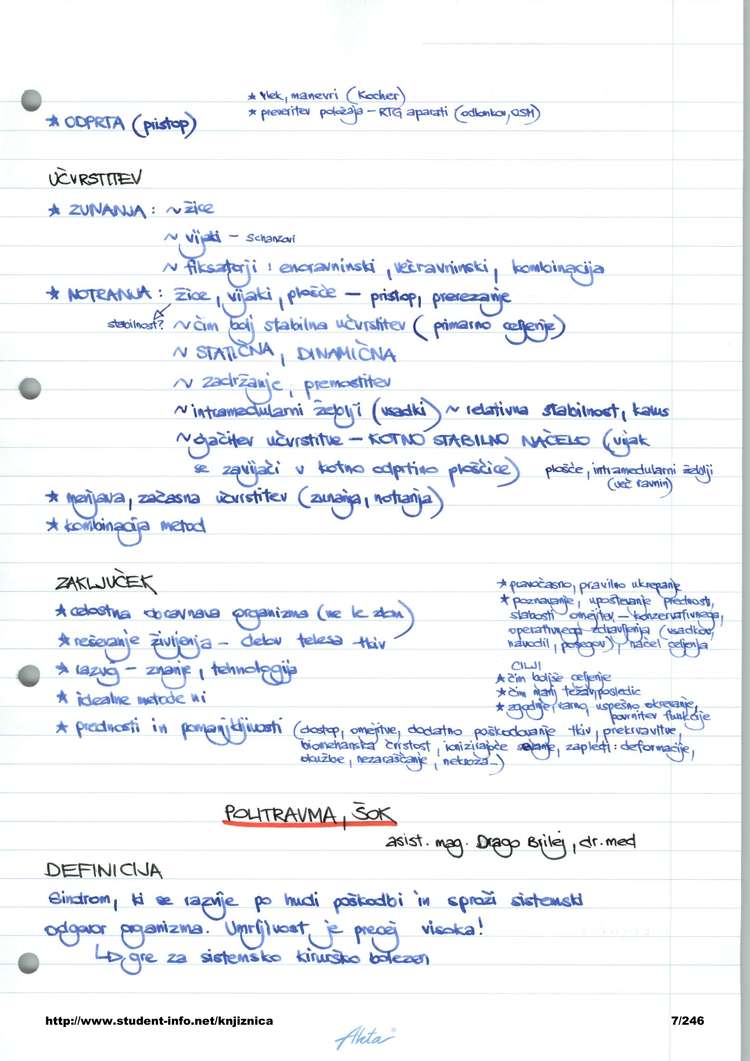 * vlek, manevri (Kocher)
* preveritev položaja – RTG aparati (odlomkov, OSM)
* ODPRTA (pristop)
UČVRSTITEV
* ZUNANJA : ~ žice
~ vijaki – Schanzovi
~ fiksatorji : enoravninski, večravninski, kombinacija
* NOTRANJA : žice, vijaki, plošče – pristop, prerezanje
stabilnost? ~ čim bolj stabilna učvrstitev (primarno celjenje)
~ STATIČNA, DINAMIČNA
~ zadržanje, premostitev
~ intramedularni žeblji (vsadki) ~ relativna stabilnost, kalus
~ ojačitev učvrstitve – KOTNO STABILNO NAČELO (vijak
se zavijači v kotno odprtino ploščice) plošče, intramedularni žeblji
(več ravnin)
* menjava, začasna učvrstitev (zunanja, notranja)
* kombinacija metod
ZAKLJUČEK
* celostna obravnava organizma (ne le zlom)
* reševanje življenja – delov telesa tkiv
* razvoj – znanje, tehnologija
* idealne metode ni
* prednosti in pomanjkljivosti (dostop, omejitve, dodatno poškodovanje tkiv, prekrvavitve,
biomehanska čvrstost, ionizirajoče sevanje, zapleti : deformacije,
okužbe, nezaraščanje, nekroza...)
* pravočasno, pravilno ukrepanje
* poznavanje, upoštevanje prednosti,
slabosti omejitev – konzervativnega,
operativnega zdravljenja (vsadkov,
navodil, posegov), načel celjenja
CILJI
* čim boljše celjenje
* čim manj težav, posledic
* zgodnje, varno, uspešno okrevanje,
povrnitev funkcije
POLITRAVMA, ŠOK
asist. mag. Drago Brilej, dr. med
DEFINICIJA
Sindrom, ki se razvije po hudi poškodbi in sproži sistemski
odgovor organizma. Umrljivost je precej visoka!
↳ gre za sistemsko kirurško bolezen
http://www.student-info.net/knjiznica
7/246
Akta